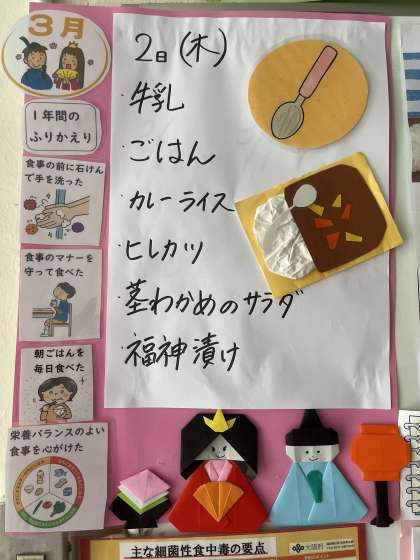 3月
1年間の
ふりかえり
食事の前に石けん
で手を洗った
食事のマナーを
守って食べた
朝ごはんを
毎日食べた
栄養バランスのよい
食事を心がけた
2日(木)
・牛乳
・ごはん
・カレーライス
・ヒレカツ
・茎わかめのサラダ
・福神漬け
主な細菌性食中毒の要点
大阪府